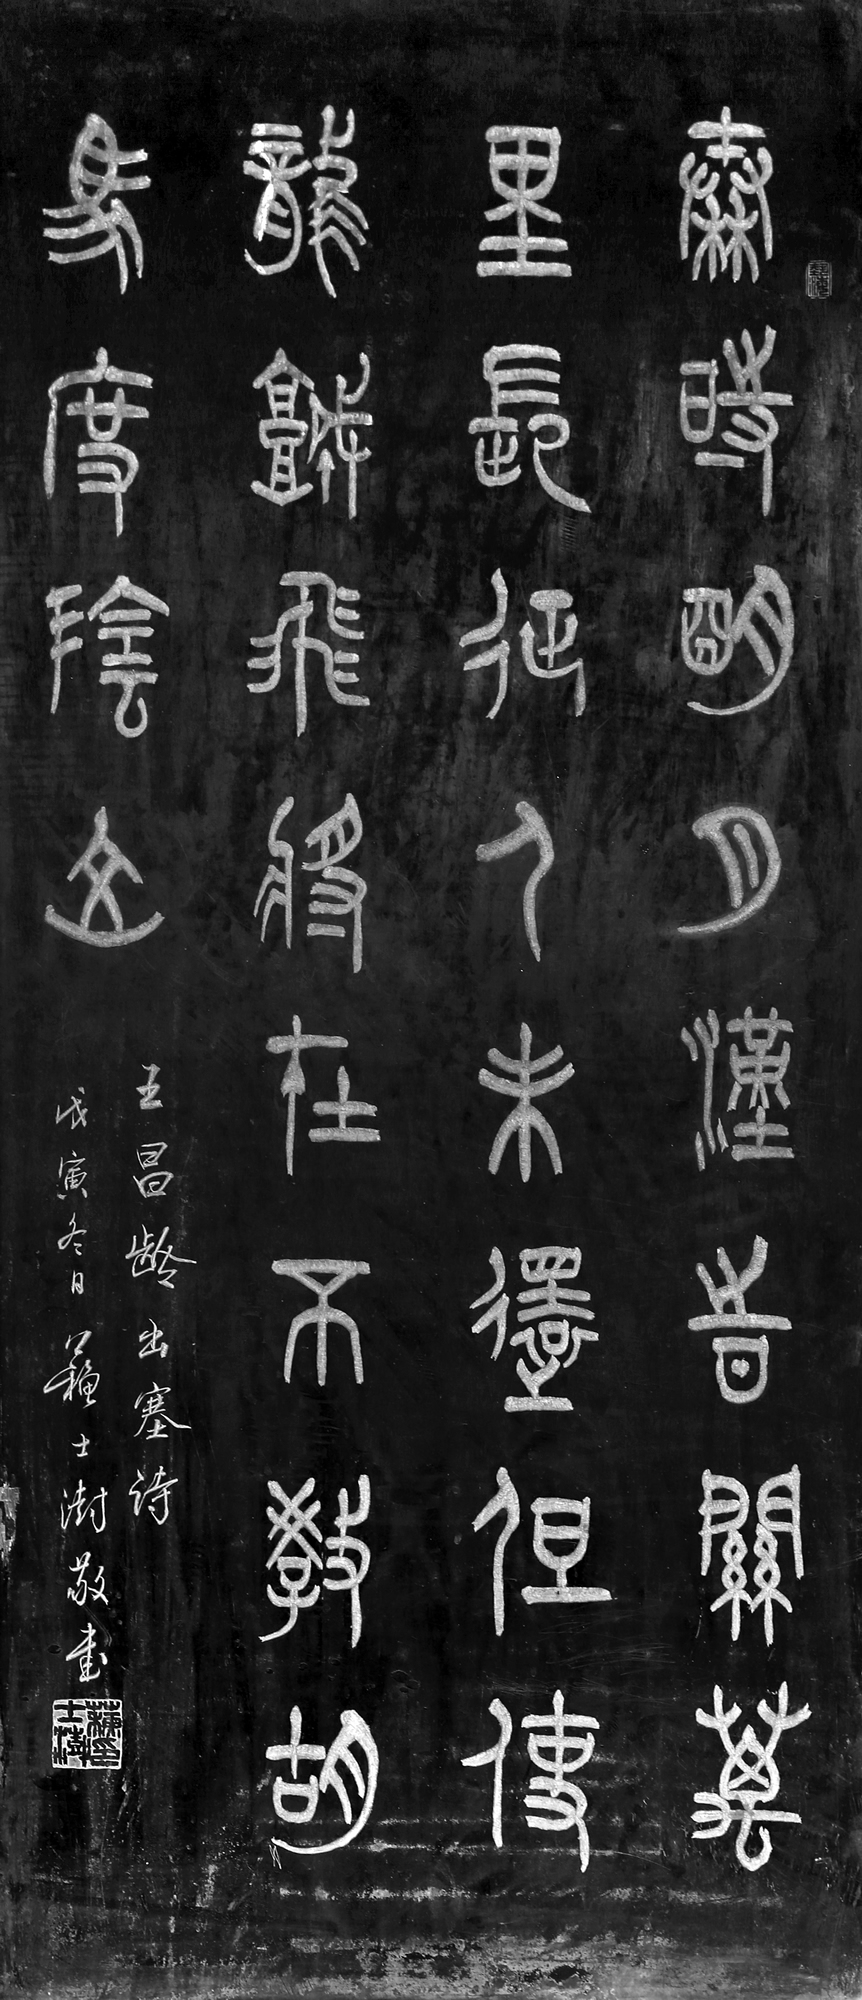 秦時明月漢旹關萬
里長征人未還但使
龍城飛將在不教胡
馬度陰山
王昌龄出塞诗
戊寅冬日蘇士澍敬書